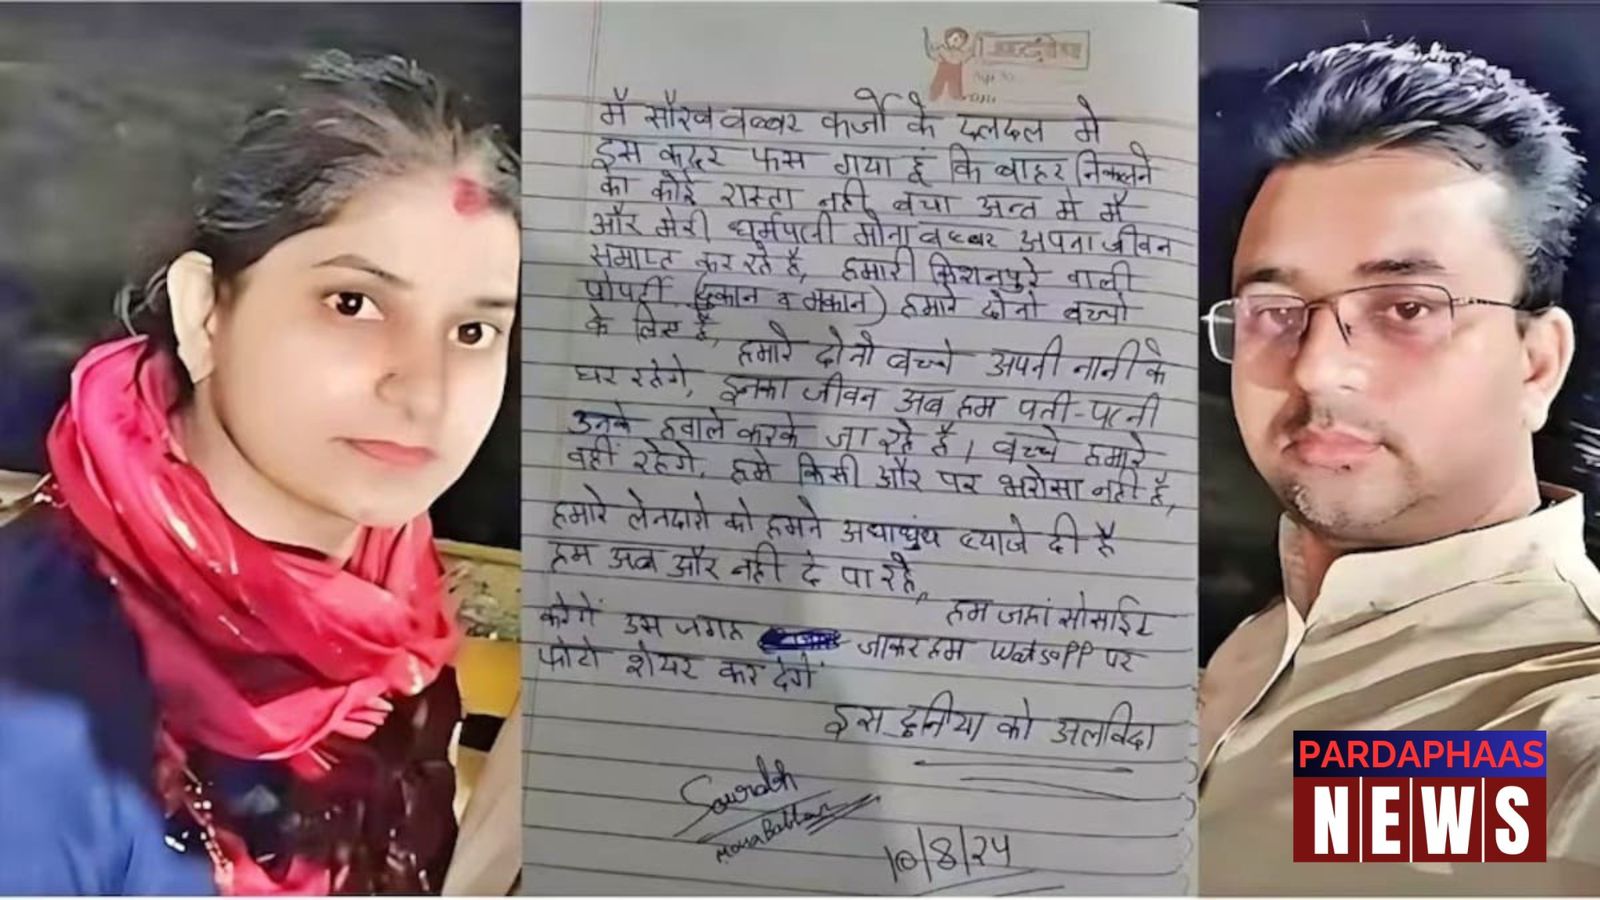 मै सौरव बब्बर कर्जो के दलदल मे
इस कदर फस गया हूं कि बाहर निकलने
का कोई रास्ता नही बचा अन्त मे मै
और मेरी धर्मपत्नी मोना बब्बर अपना जीवन
समाप्त कर रहे है, हमारी किशनपुरे वाली
प्रोपर्टी (दुकान व मकान) हमारे दोनो बच्चो
के लिए है, हमारे दोनो बच्चे अपनी नानी के
घर रहेगे, इनका जीवन अब हम पती-पत्नी
उनके हवाले करके जा रहे है। बच्चे हमारे
वहीं रहेगे, हमे किसी और पर भरोसा नही है,
हमारे लेनदारो को हमने अधाधुंध ब्याजे दी है
हम अब और नही दे पा रहे,
हम जहां सोसाईट
करेगें उस जगह जाकर हम Watsapp पर
फोटो शेयर कर देगें
इस दुनिया को अलविदा
Sourabh
Mona Babbar
10/8/24
PARDAPHAAS
NEWS